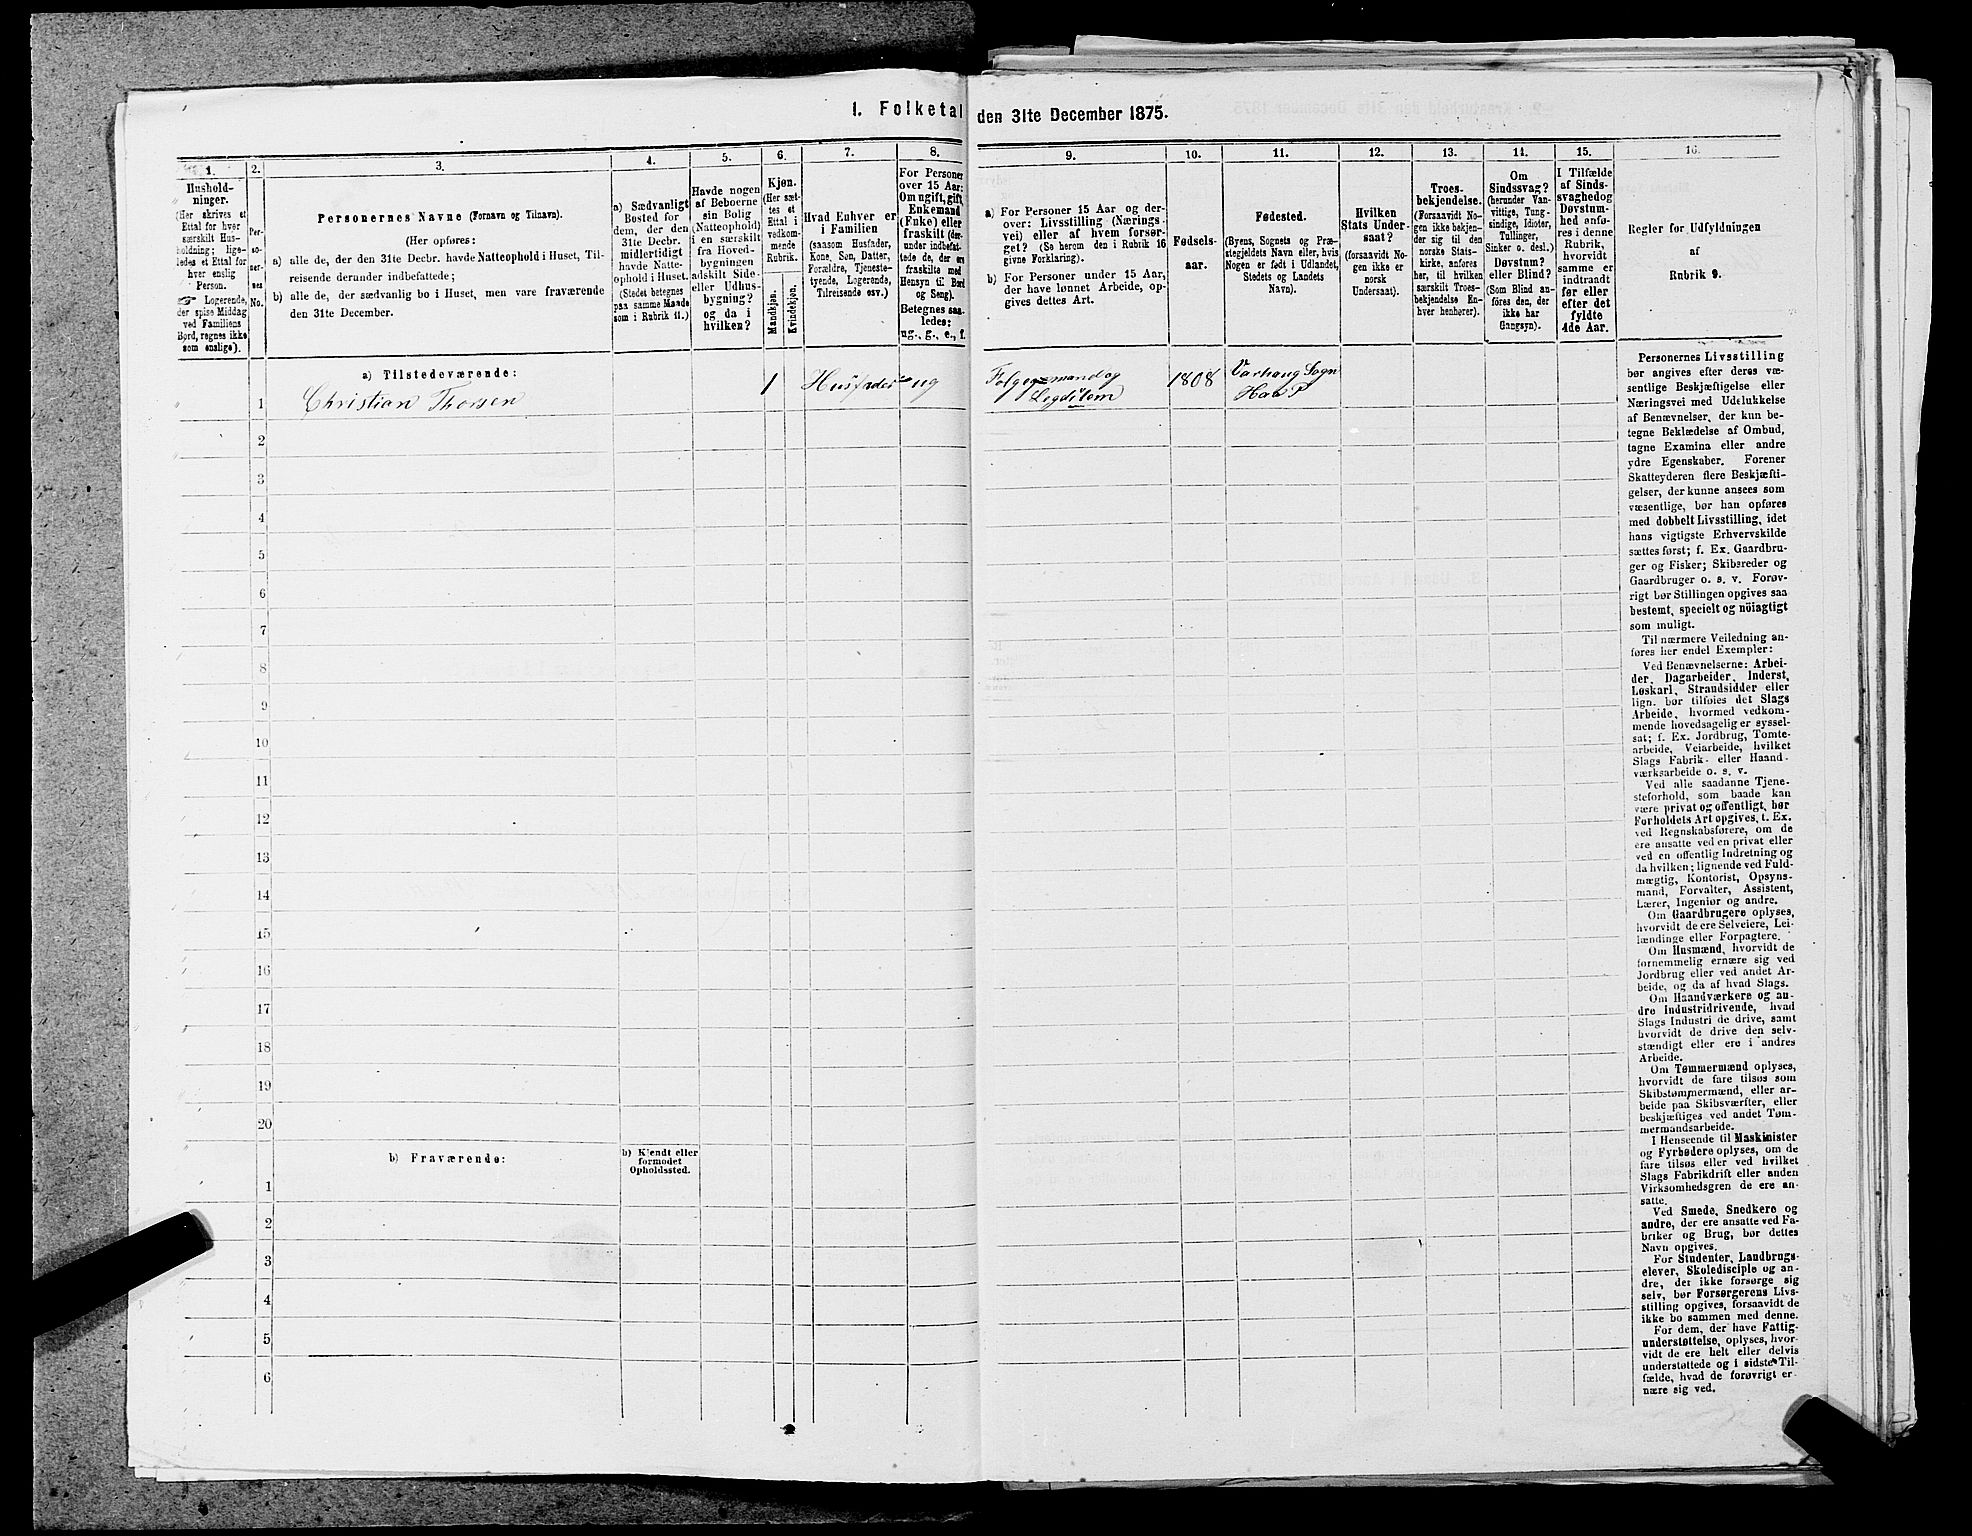 1. Folketal den 31te December 1875.
1.
Hushold-
ninger.
(Her skrives et
Ettal for hver
særskilt Hus-
holdning; lige-
ledes et Ettal for
hver enslig
Person.
☞ Logerende,
der spise Middag
ved Familiens
Bord, regnes ikke
som enslige).
2.
Per-
so-
ner-
nes
No.
3.
Personernes Navne (Fornavn og Tilnavn).
(Her opføres:
a) alle de, der den 31te Decbr. havde Natteophold i Huset, Til-
reisende derunder indbefattede;
b) alle de, der sædvanlig bo i Huset, men vare fraværende
den 31te December.
4.
a) Sædvanligt
Bosted for
dem, der den
31te Decbr.
midlertidigt
havde Natte-
ophold i Huset.
(Stedet betegnes
paa samme Maade
som i Rubrik 11.)
5.
Havde nogen
af Beboerne
sin Bolig
(Natteophold)
i en særskilt
fra Hoved-
bygningen
adskilt Side-
eller Udhus-
bygning?
og da i
hvilken?
6.
Kjøn.
(Her sæt-
tes et
Ettal i
vedkom-
mende
Rubrik.
Mandkjøn.
Kvindekjøn.
7.
Hvad Enhver er
i Familien
(saasom Husfader,
Kone, Søn, Datter,
Forældre, Tjeneste-
tyende, Logerende,
Tilreisende osv.)
8.
For Personer
over 15 Aar:
Om ugift, gift,
Enkemand
(Enke) eller
fraskilt (der-
under indbefat-
tede de, der ere
fraskilte med
Hensyn til Bord
og Seng).
Betegnes saa-
ledes:
ug., g., e., f.
9.
a) For Personer 15 Aar og der-
over: Livsstilling (Nærings-
vei) eller af hvem forsør-
get? (Se herom den i Rubrik 16
givne Forklaring).
b) For Personer under 15 Aar,
der have lønnet Arbeide, op-
gives dettes Art.
10.
Fødsels-
aar.
11.
Fødested.
(Byens, Sognets og Præ-
stegjeldets Navn eller, hvis
Nogen er født i Udlandet,
Stedets og Landets
Navn).
12.
Hvilken
Stats Under-
saat?
(forsaavidt No-
gen ikke er
norsk
Undersaat).
13.
Troes-
bekjendelse.
(Forsaavidt No-
gen ikke bekjen-
der sig til den
norske Stats-
kirke, anføres
her, til hvilken
særskilt Troes-
bekjendelse En-
hver henhører).
14.
Om
Sindssvag?
(herunder Van-
vittige, Tung-
sindige, Idioter,
Tullinger,
Sinker o. desl.)
Døvstum?
eller Blind?
(Som Blind an-
føres den, der
ikke har
Gangsyn).
15.
I Tilfælde
af Sinds-
svaghed og
Døvstum-
hed anfø-
res i denne
Rubrik,
hvorvidt
samme er
indtraadt
før eller
efter det
fyldte
4de Aar.
16.
Regler for Udfyldningen
af
Rubrik 9.
a) Tilstedeværende:
1 Christian Thorsen 1 Husfader ug mand og 1808 Varhaug Sogn
Haa P
2
3
4
5
6
7
8
9
10
11
12
13
14
15
16
17
18
19
20
b) Fraværende:
b) Kjendt eller
formodet
Opholdssted.
1
2
3
4
5
6
Personernes Livsstilling
bør angives efter deres væ-
sentlige Beskjæftigelse eller
Næringsvei med Udelukkelse
af Benævnelser, der kun be-
tegne Beklædelse af Ombud,
tagne Examina eller andre
ydre Egenskaber. Forener
Skatteyderen flere Beskjæfti-
gelser, der kunne ansees som
væsentlige, bør han opføres
med dobbelt Livsstilling, idet
hans vigtigste Erhvervskilde
sættes først; f. Ex. Gaardbru-
ger og Fisker; Skibsreder og
Gaardbruger o. s. v. Forøv-
rigt bør Stillingen opgives saa
bestemt, specielt og nöiagtigt
som muligt.
Til nærmere Veiledning an-
føres her endel Exempler:
Ved Benævnelserne: Arbei-
der, Dagarbeider, Inderst,
Løskarl, Strandsidder eller
lign. bør tilføies det Slags
Arbeide, hvormed vedkom-
mende hovedsagelig er syssel-
sat; f. Ex. Jordbrug, Tomte-
arbeide, Veiarbeide, hvilket
Slags Fabrik- eller Haand-
værksarbeide o. s. v.
Ved alle saadanne Tjene-
steforhold, som baade kan
være privat og offentligt, bør
Forholdets Art opgives, t. Ex.
ved Regnskabsførere, om de
ere ansatte ved en privat eller
ved en offentlig Indretning og
da hvilken; lignende ved Fuld-
mægtig, Kontorist, Opsyns-
mand, Forvalter, Assistent,
Lærer, Ingeniør og andre.
Om Gaardbrugere oplyses,
hvorvidt de ere Selveiere, Lei-
lændinge eller Forpagtere.
Om Husmænd, hvorvidt de
fornemmelig ernære sig ved
Jordbrug eller ved andet Ar-
beide, og da af hvad Slags.
Om Haandværkere og an-
dre Industridrivende, hvad
Slags Industri de drive, samt
hvorvidt de drive den selv-
stændigt eller ere i andres
Arbeide.
Om Tømmermænd oplyses,
hvorvidt de fare tilsøs som
Skibstømmermænd, eller ar-
beide paa Skibsværfter, eller
beskjæftiges ved andet Tøm-
mermandsarbeide.
I Henseende til Maskinister
og Fyrbødere oplyses, om de
fare tilsøs eller ved hvilket
Slags Fabrikdrift eller anden
Virksomhedsgren de ere an-
satte.
Ved Smede, Snedkere og
andre, der ere ansatte ved Fa-
briker og Brug, bør dettes
Navn opgives.
For Studenter, Landbrugs-
elever, Skoledisciple og an-
dre, der ikke forsørge sig
selv, bør Forsørgerens Livs-
stilling opgives, forsaavidt de
ikke bo sammen med denne.
For dem, der have Fattig-
understøttelse, oplyses, hvor-
vidt de ere helt eller delvis
understøttede og i sidste Til-
fælde, hvad de forøvrigt er-
nære sig ved.